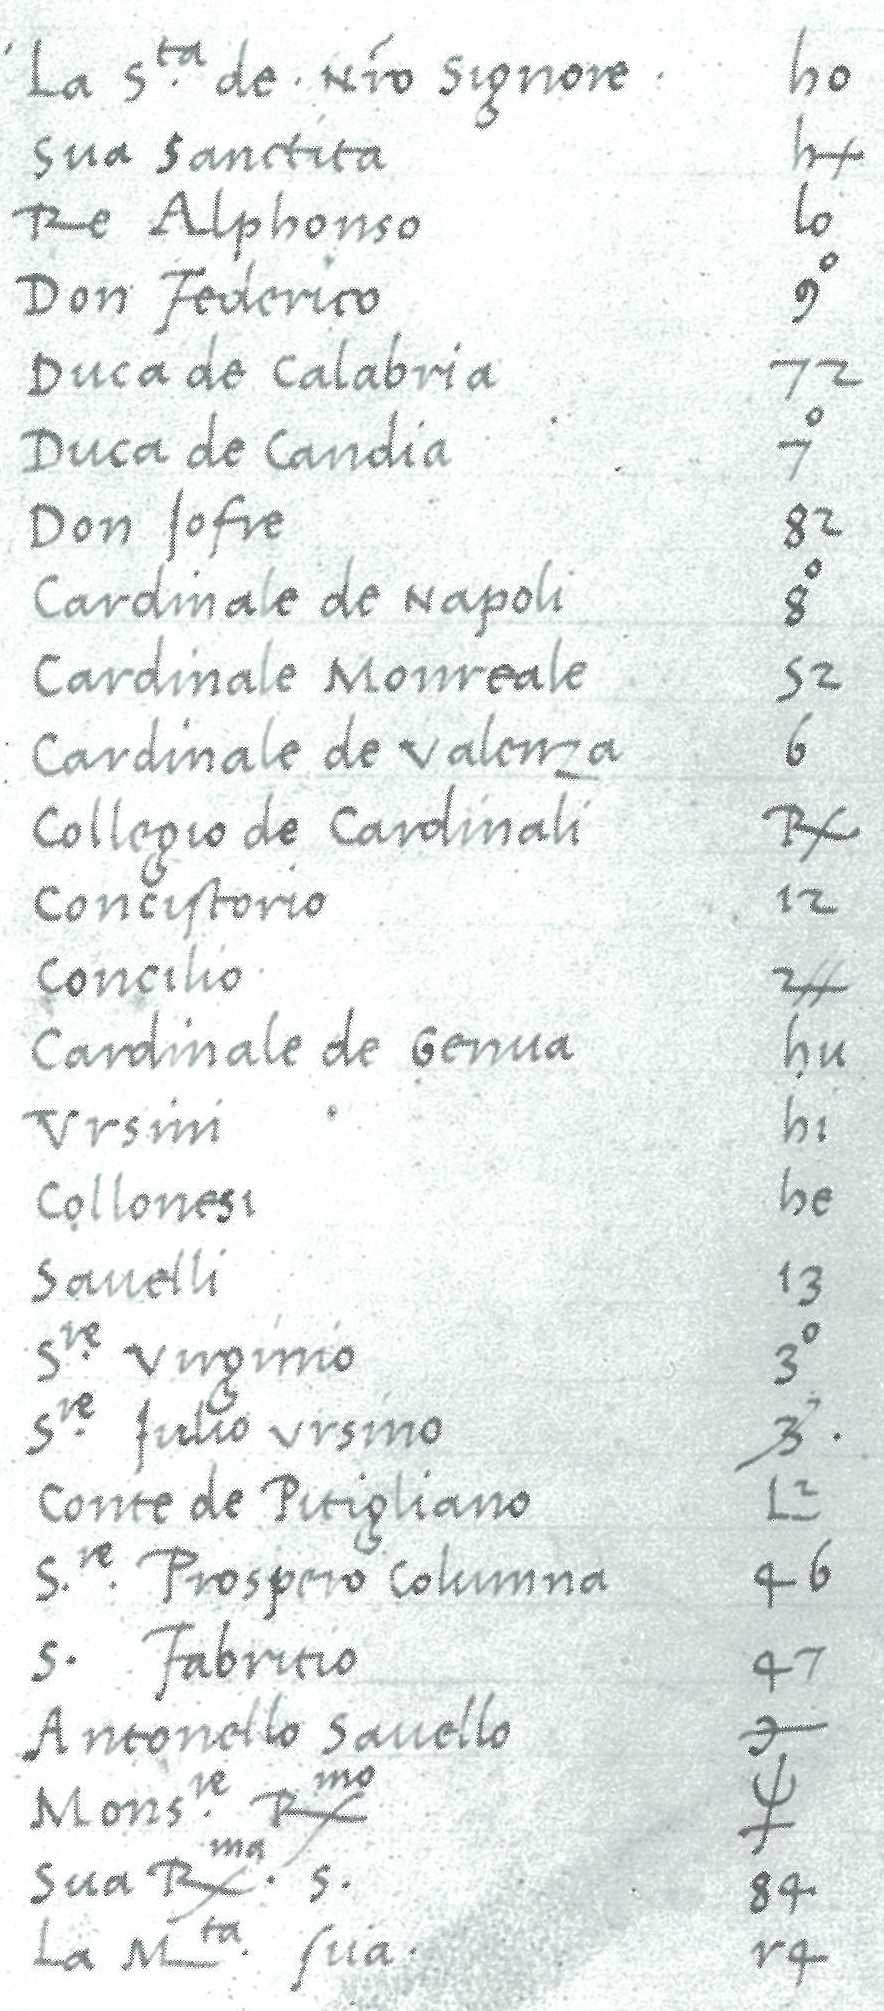 La S.ta de Nro Signore ho
Sua Sanctita h
Re Alphonso lo
Don Federico 9°
Duca de Calabria 72
Duca de Candia 7°
Don Jofre 82
Cardinale de Napoli 8°
Cardinale Monreale 52
Cardinale de Valenza 6
Collegio de Cardinali R
Concistorio 12
Concilio
Cardinale de Genua hu
Vrsini hi
Collonesi he
Sauelli 13
S.re Virginio 3°
S.re Julio Vrsino 3
Conte de Pitigliano L2
S.re Prospero Columna 46
S. Fabritio 47
Antonello Sauello
Mons.re R.mo
Sua R.ma S. 84
La M.ta sua r4